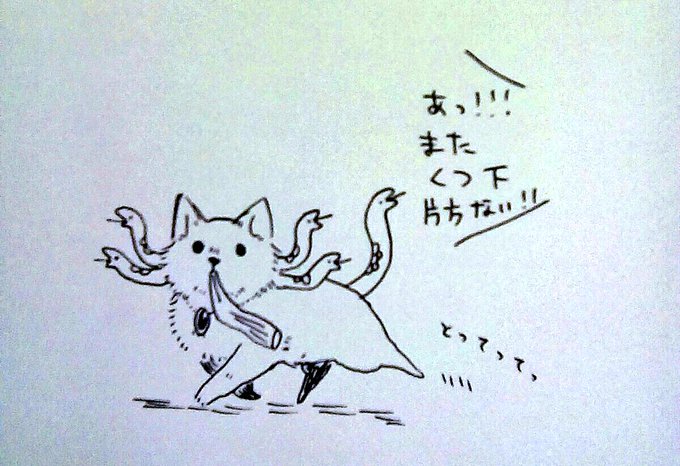 あっ!!!
また
くつ下
片方ない!!
とってってっ